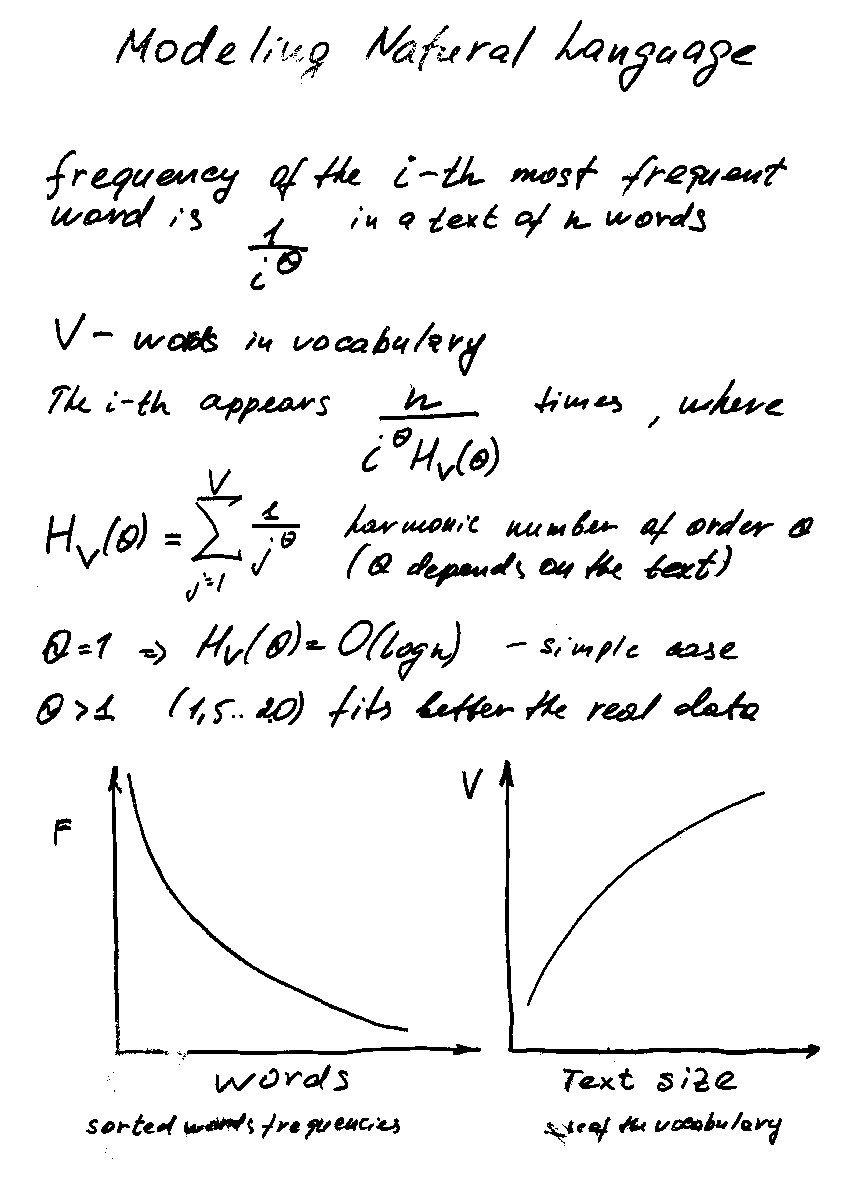 Modeling Natural Language
frequency of the i-th most frequent
word is 1/i^θ in a text of n words
V - words in vocabulary
The i-th appears n/(i^θ H_V(θ)) times, where
H_V(θ) = ∑_{j=1}^{V} 1/j^θ harmonic number of order θ
(θ depends on the text)
θ=1 ⇒ H_V(θ) = O(log n) - simple case
θ>1 (1,5..2.0) fits better the real data
F
V
words
Text size
sorted words frequencies
size of the vocabulary